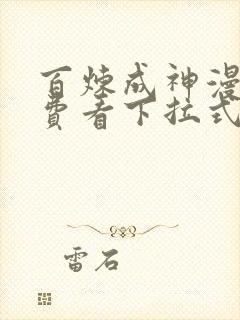 百炼成神漫
费看下拉式
雷石